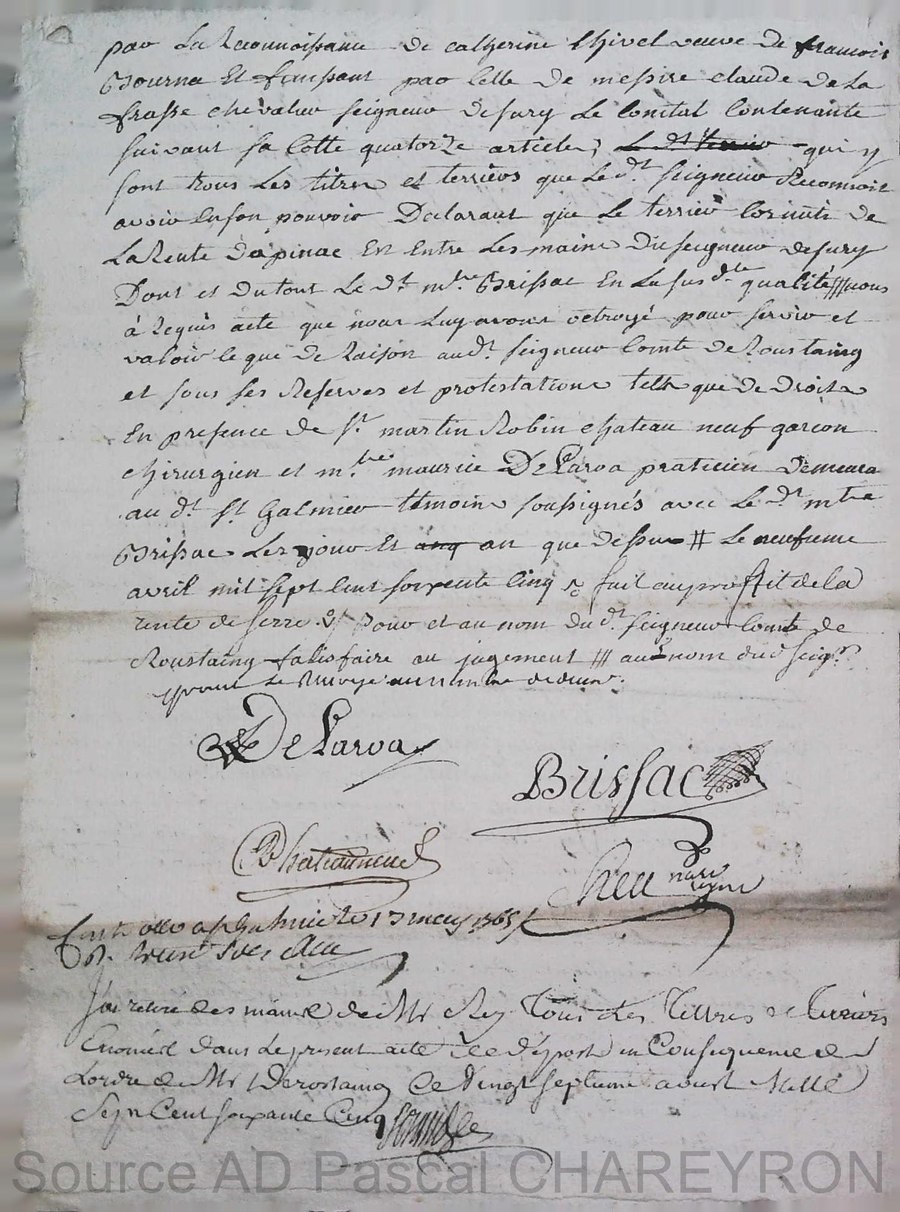 par La Reconnoissance de catherine Chivel veuve de francois
Bourna Et finissant par Celle de messire claude De La
frasse chevalier Seigneur De sury Le comtal Contenante
suivant sa Cotte quatorze articles, Le dt terrier qui y
sont tous Les titres et terriers que Le dt Seigneur Reconnoit
avoir En son pouvoir Declarant que Le terrier de
La Rente Dapinac En Entre Les mains Du seigneur de sury
Dont et Du tout Le dt mtre Brissac En La susdte qualité /// nous
à Requis acte que nous Luy avons octroyé pour servir et
valoir Ce que De Raison audt seigneur Comte De Roustaing
et sous ses Reserves et protestations telles que De droit
En presence de sr martin Robin chateau neuf garcon
chirurgien et mtre maurice DeLarva praticien Demeura
au dt st Galmier temoins soussignés avec Le dt mtre
Brissac Les jour Et an que Dessus # Le neufieme
avril mil sept Cent soixante Cinq fait au proffit de la
rente de serre & pour et au nom du dt seigneur Comte De
Roustaing satisfaire au jugement /// au nom dud seigr
DeLarva
Brissac
Chateauneuf
Rey
1765
J'ai retiré des mains de Mr Rey Tous Les Tittres et Terriers
Enoncés dans Le present acte de Depost en Consequence de
Lordre de Mr De rostaing Ce Vingt septieme aoust Mille
Sept Cent soixante Cinq
Source AD Pascal CHAREYRON